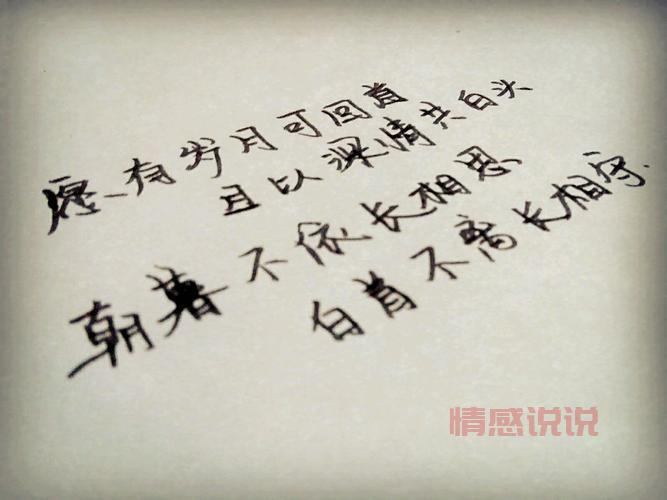 愿有岁月可回首
且以深情共白头
朝暮不依长相思
白首不离长相守
情感说说